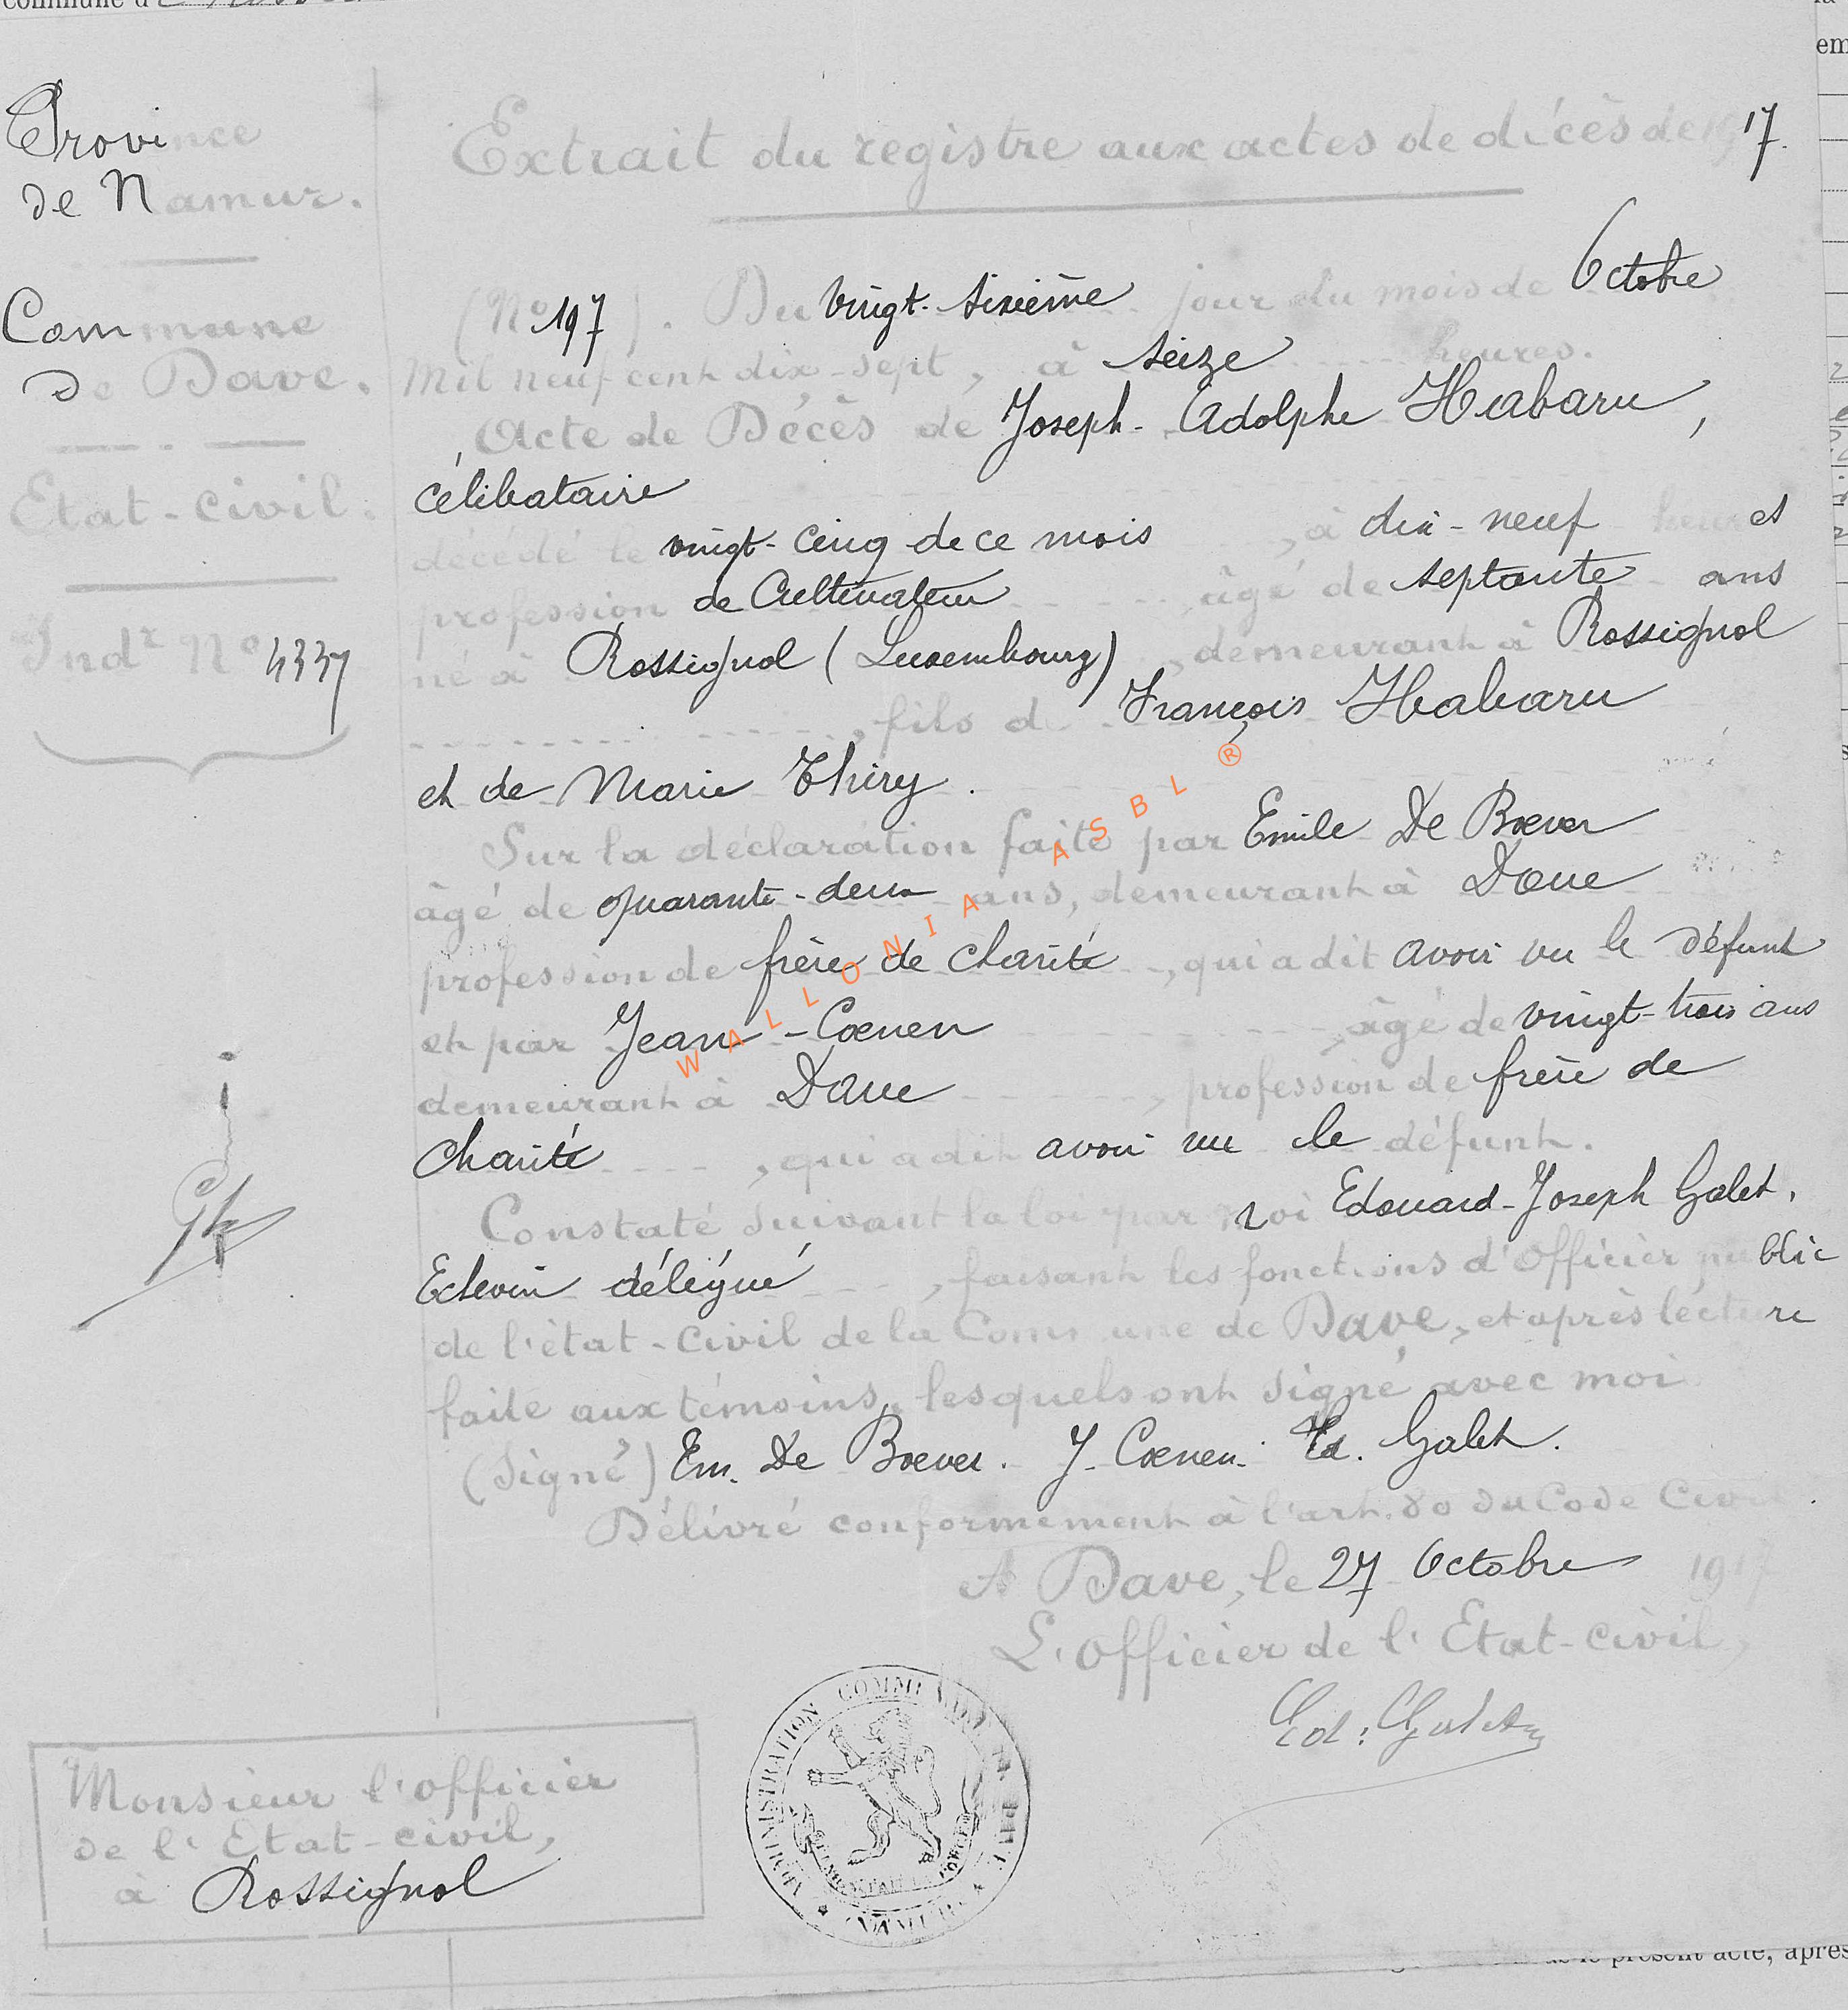 Province
de Namur.
Commune
De Dave.
Etat-civil.
Indr No 4337
Extrait du registre aux actes de décès de 1917.
(No 197). Du vingt-sixième jour du mois de Octobre
Mil neuf cent dix-sept, à seize heures.
Acte de Décès de Joseph-Adolphe Habaru,
célibataire
décédé le vingt-cinq de ce mois, à dix-neuf heures et
profession de Cultivateur, âgé de septante ans
né à Rossignol (Luxembourg), demeurant à Rossignol
, fils de François Habaru
et de Marie Thiry.
Sur la déclaration faite par Emile De Boever
âgé de quarante-deux ans, demeurant à Dave
profession de frère de charité, qui a dit avoir vu le défunt
et par Jean-Coenen, âgé de vingt-trois ans
demeurant à Dave, profession de frère de
charité, qui a dit avoir vu le défunt.
Constaté suivant la loi par moi Edouard-Joseph Galet,
Echevin délégué, faisant les fonctions d'Officier public
de l'état-civil de la Commune de Dave, et après lecture
faite aux témoins, lesquels ont signé avec moi
(Signé) Em. De Boever. J. Coenen. Ed. Galet.
Délivré conformément à l'art. 80 du Code Civil.
A Dave, le 27 Octobre 1917
L'Officier de l'Etat-civil,
Ed: Galet
Monsieur l'officier
de l'Etat-civil,
à Rossignol
ADMINISTRATION COMMUNALE DE DAVE
NAMUR
L'UNION FAIT LA FORCE
WALLONIA ASBL ®
le présent acte, après